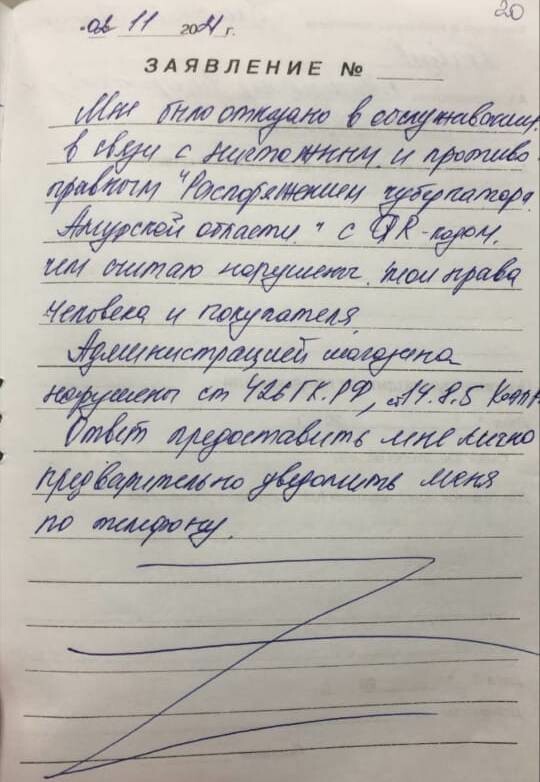 20
02 11 2021 г.
ЗАЯВЛЕНИЕ № ____
Мне было отказано в обслуживании,
в связи с ничтожным и противо
правным "Распоряжением губернатора
Амурской области" с QR-кодом,
чем считаю нарушены мои права
человека и покупателя.
Администрацией магазина
нарушены ст 426 ГК.РФ, ст 14.8.5 КоАП Р
Ответ предоставить мне лично
предварительно уведомить меня
по телефону.